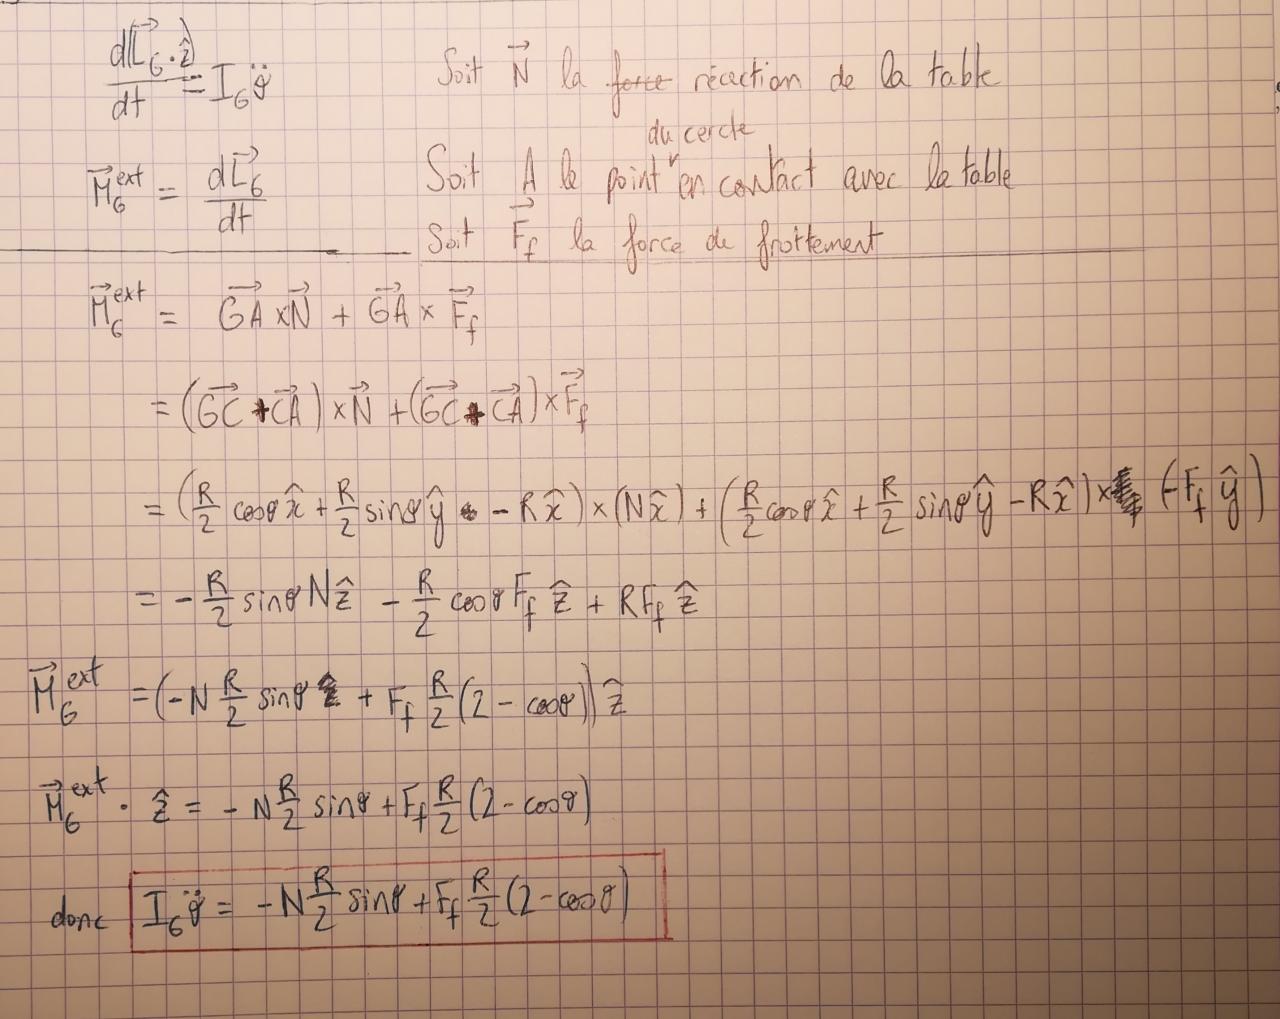 d(L⃗_G · ẑ)/dt = I_G φ̈
Soit N⃗ la force réaction de la table
M⃗_G^ext = dL⃗_G/dt
du cercle
Soit A le point en contact avec la table
Soit F⃗_f la force de frottement
M⃗_G^ext = GA⃗ × N⃗ + GA⃗ × F⃗_f
= (GC⃗ + CA⃗) × N⃗ + (GC⃗ + CA⃗) × F⃗_f
= (R/2 cosφ x̂ + R/2 sinφ ŷ - R x̂) × (N x̂) + (R/2 cosφ x̂ + R/2 sinφ ŷ - R x̂) × (-F_f ŷ)
= - R/2 sinφ N ẑ - R/2 cosφ F_f ẑ + R F_f ẑ
M⃗_G^ext = (-N R/2 sinφ + F_f R/2 (2 - cosφ)) ẑ
M⃗_G^ext · ẑ = - N R/2 sinφ + F_f R/2 (2 - cosφ)
donc I_G φ̈ = - N R/2 sinφ + F_f R/2 (2 - cosφ)